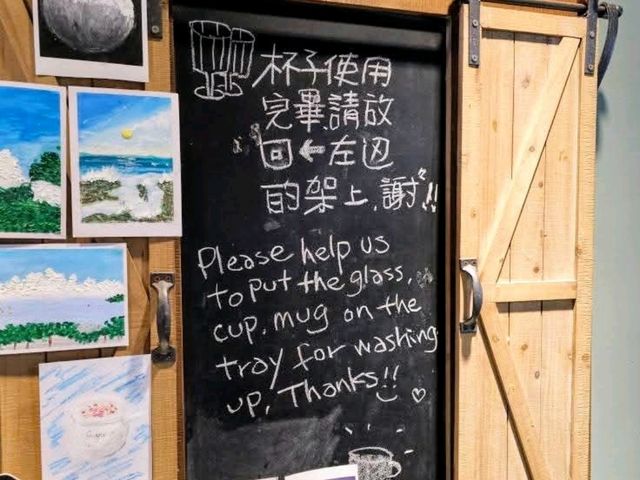 杯子使用
完畢請放
回←左边
的架上,謝!!
Please help us
to put the glass,
cup, mug on the
tray for washing
up. Thanks!!